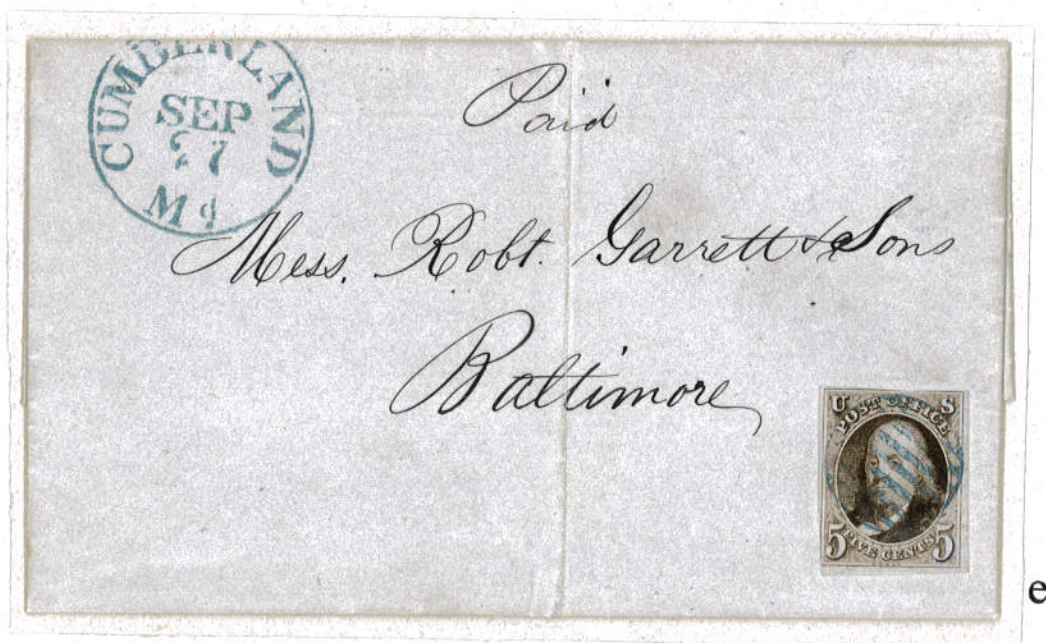 CUMBERLAND
SEP
27
Md
Paid
Mess. Robt. Garrett & Sons
Baltimore
U S
POST OFFICE
5 FIVE CENTS 5
e